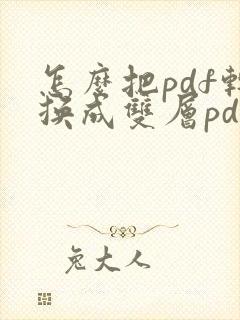 怎麼把pdf轉
換成雙層pd
兔大人